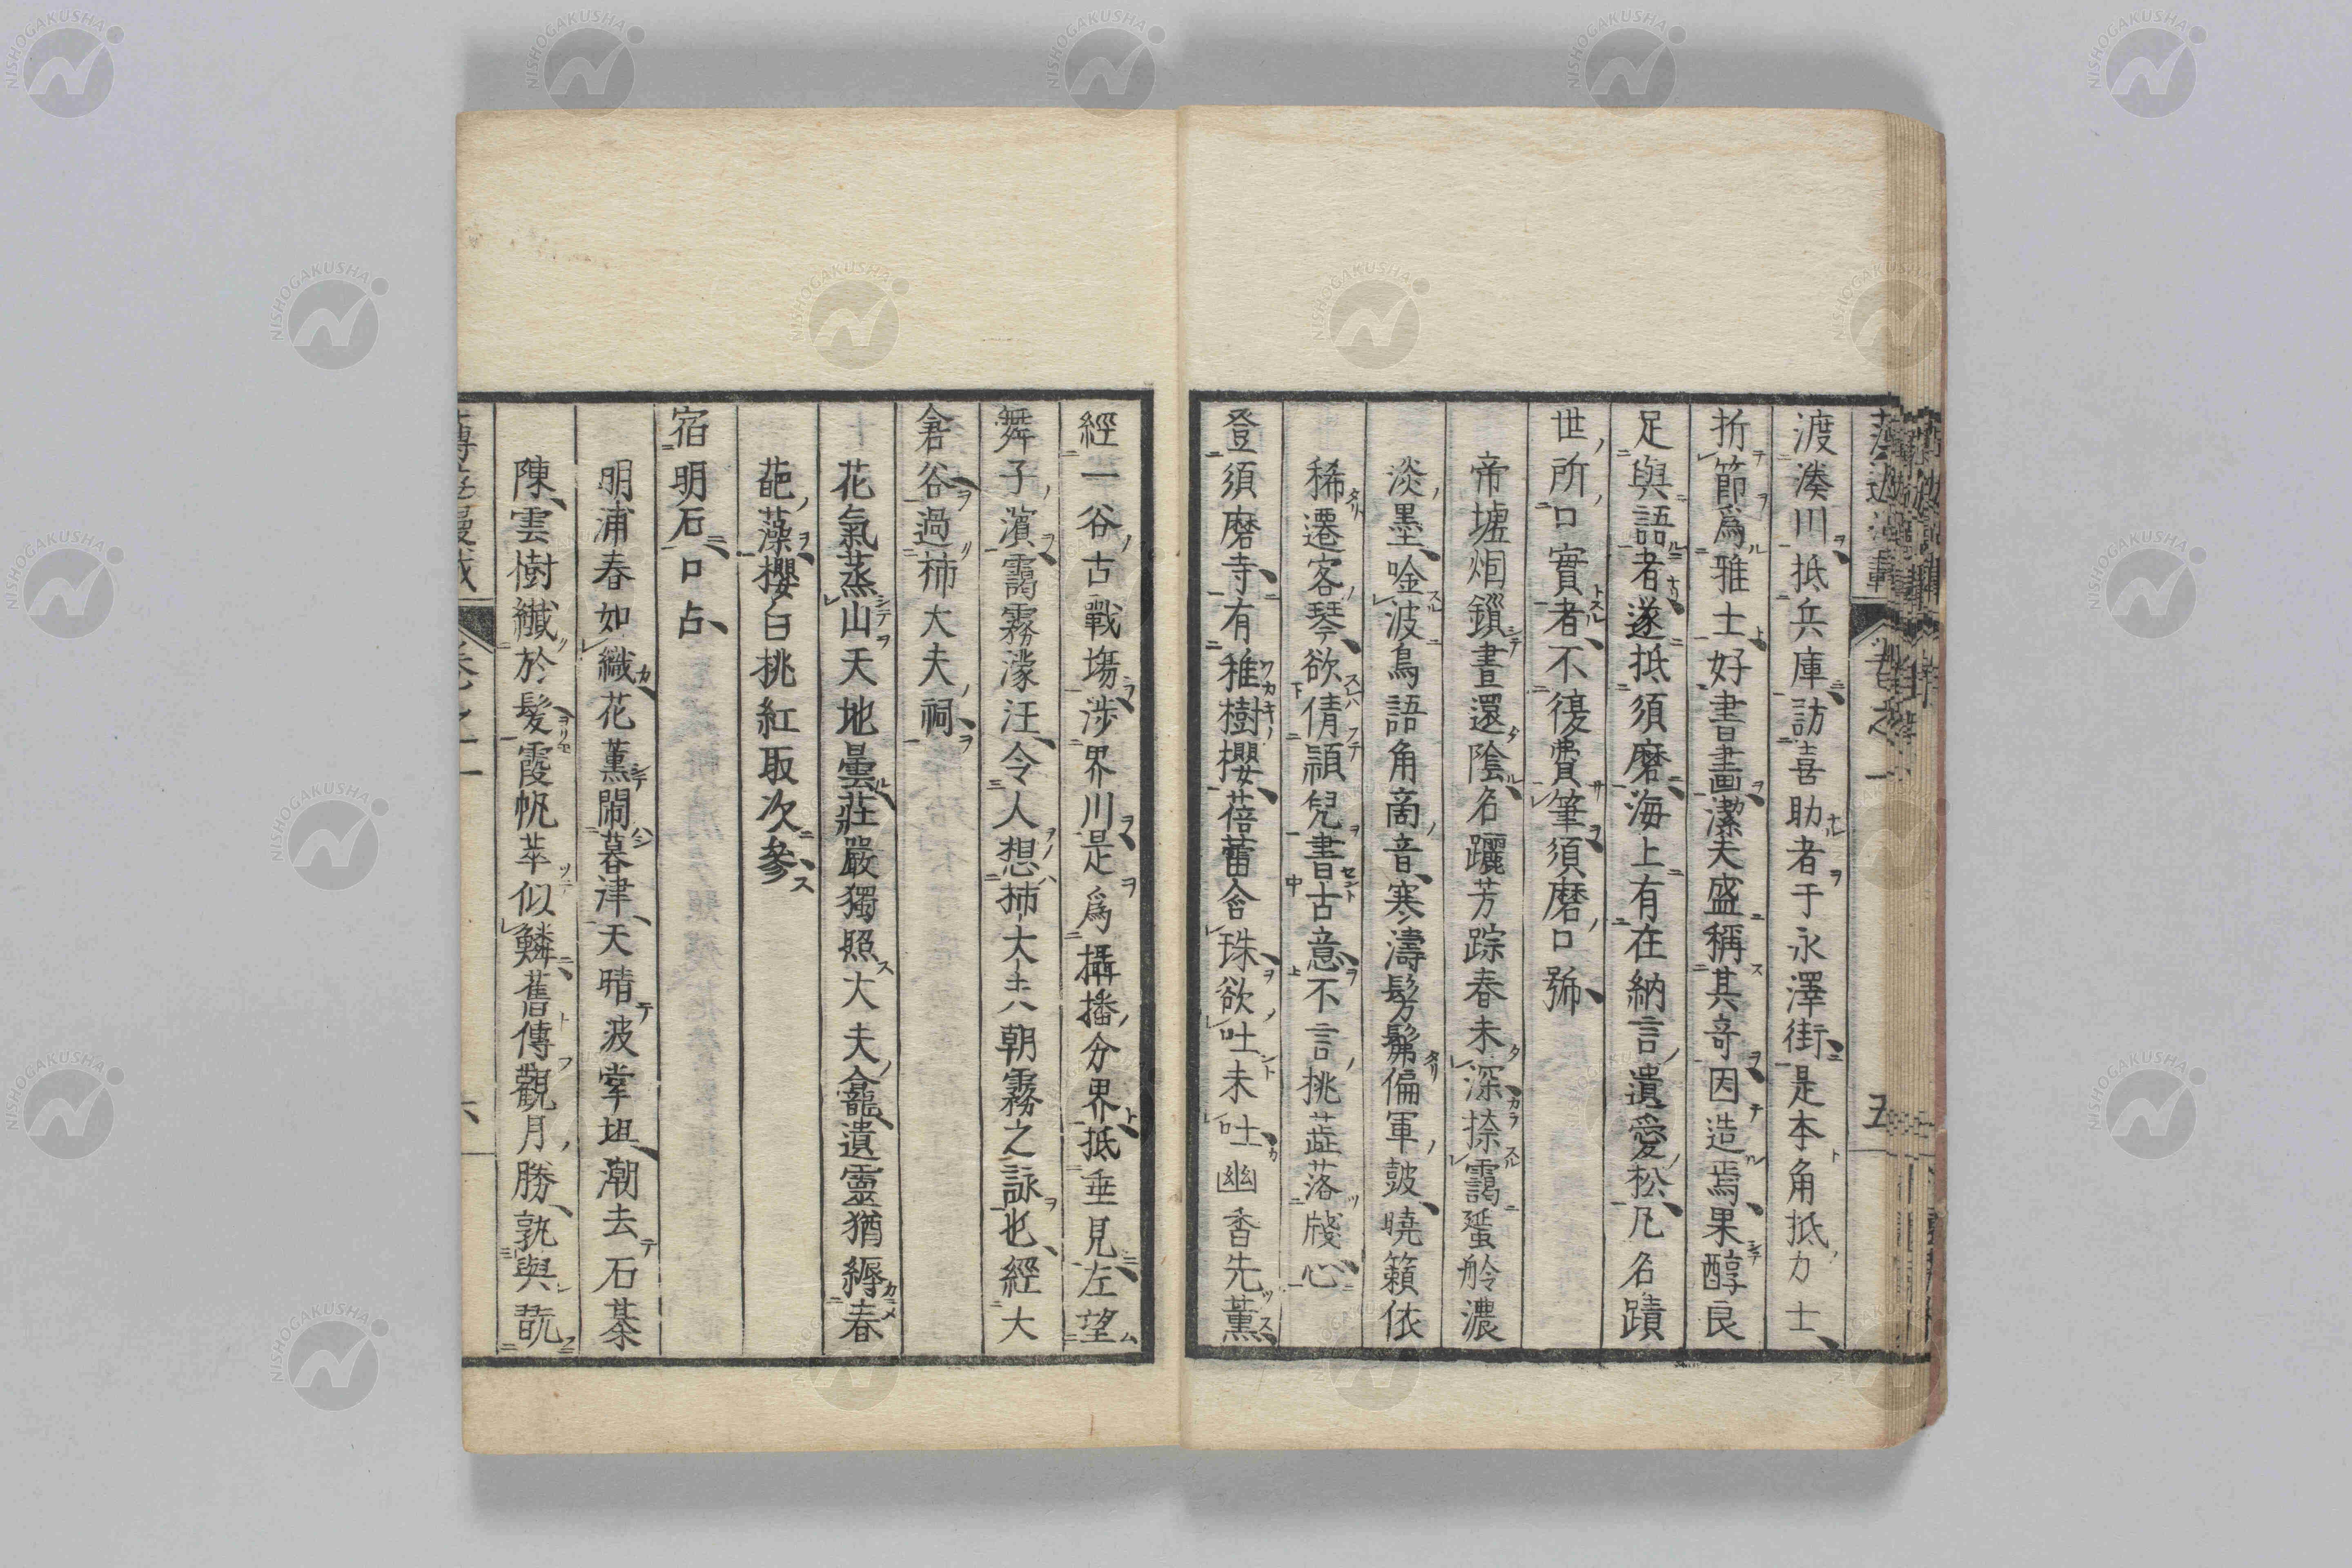 渡湊川抵兵庫訪喜助者于永澤街是本角抵力士
折節爲雅士好書畫潔夫盛稱其奇因造焉果醇良
足與語者遂抵須磨海上有在納言遺愛松凡名蹟
世所口實者不復費筆須磨口號
帝墟烟鎖晝還陰名躧芳踪春未深捺靄蜑舲濃
淡墨唫波鳥語角商音寒濤髣髴偏軍鼓曉籟依
稀遷客琴欲倩頴兒書古意不言挑蕋落牋心
登須磨寺有稚樹櫻蓓蕾含珠欲吐未吐幽香先薰
經一谷古戰塲涉界川是爲攝播分界抵垂見左望
舞子濱靄霧濛汪令人想柿大夫朝霧之詠也經大
倉谷過柿大夫祠
花氣蒸山天地曇莊嚴獨照大夫龕遺靈猶縟春
葩藻櫻白挑紅取次參
宿明石口占
明浦春如織花薰閙暮津天晴波掌坦潮去石棊
陳雲樹纖於髮霞帆萃似鱗舊傳觀月勝孰與翫
卷之一
五
六
NISHOGAKUSHA